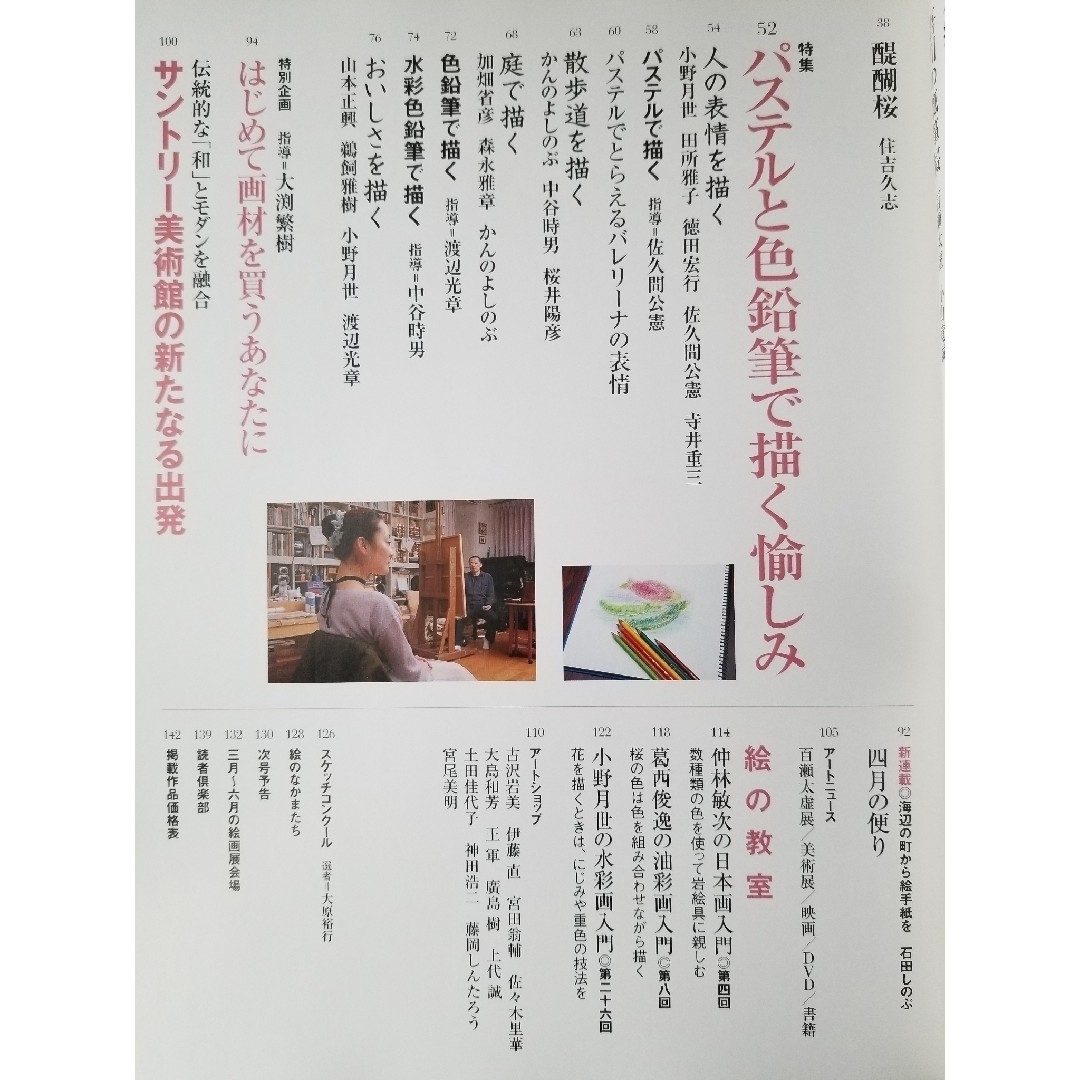 38
醍醐桜 住吉久志
特集
52
パステルと色鉛筆で描く愉しみ
54
人の表情を描く
小野月世 田所雅子 徳田宏行 佐久間公憲 寺井重三
58
パステルで描く 指導=佐久間公憲
60
パステルでとらえるバレリーナの表情
63
散歩道を描く
かんのよしのぶ 中谷時男 桜井陽彦
68
庭で描く
加畑省彦 森永雅章 かんのよしのぶ
72
色鉛筆で描く 指導=渡辺光章
74
水彩色鉛筆で描く 指導=中谷時男
76
おいしさを描く
山本正興 鵜飼雅樹 小野月世 渡辺光章
特別企画 指導=大渕繁樹
94
はじめて画材を買うあなたに
伝統的な「和」とモダンを融合
100
サントリー美術館の新たなる出発
92
新連載◎海辺の町から絵手紙を 石田しのぶ
四月の便り
105
アートニュース
百瀬太虚展/美術展/映画/DVD/書籍
絵の教室
114
仲林敏次の日本画入門◎第四回
数種類の色を使って岩絵具に親しむ
118
葛西俊逸の油彩画入門◎第八回
桜の色は色を組み合わせながら描く
122
小野月世の水彩画入門◎第二十六回
花を描くときは、にじみや重色の技法を
110
アートショップ
古沢岩美 伊藤 直 宮田翁輔 佐々木里華
大島和芳 王 軍 廣島 樹 上代 誠
土田佳代子 神田浩二 藤岡しんたろう
宮尾美明
126
スケッチコンクール 選者=大原裕行
128
絵のなかまたち
130
次号予告
132
三月〜六月の絵画展会場
139
読者倶楽部
142
掲載作品価格表